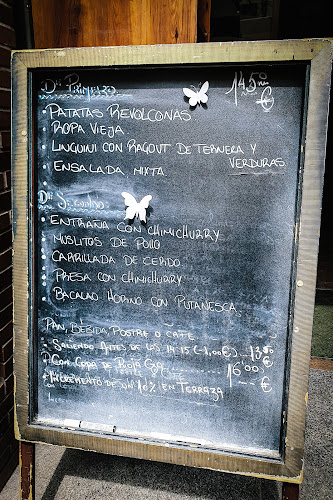 De Primero 14,50 €
• PATATAS REVOLCONAS
• ROPA VIEJA
• LINGUINI CON RAGOUT DE TERNERA Y
VERDURAS
• ENSALADA MIXTA
De Segundo:
• ENTRAÑA CON CHIMICHURRY
• MUSLITOS DE POLLO
• CARRILLADA DE CERDO
• PRESA CON CHIMICHURRY
• BACALAO HORNO CON PUTANESCA
PAN, BEBIDA, POSTRE O CAFÉ
• SALIENDO ANTES DE LAS 14:15 (-1,00€) 13,50 €
• CON COPA DE RIOJA 16,00 €
• INCREMENTO DE UN 10% EN TERRAZA